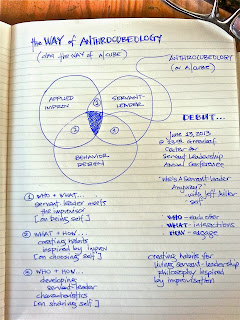 the WAY of ANTHROCUBEOLOGY
(AKA the WAY OF A/CUBE)
ANTHROCUBEOLOGY
(or A/CUBE)
APPLIED
IMPROV
SERVANT-
LEADER
1
2
3
BEHAVIOR
DESIGN
DEBUT...
June 13, 2013
@ 23rd Greenleaf
Center for
Servant Leadership
Annual Conference
"Who's A Servant Leader
Anyway?"
with Jeff
Self
WHO - each other
WHAT - interactions
HOW - engage
creating habits for
living servant-leadership
philosophy inspired
by improvisation
1 WHO + WHAT...
servant-leader meets
the improvisor
[on being self]
2 WHAT + HOW...
creating habits
inspired by improv
[on choosing self]
3 WHO + HOW...
developing
servant-leader
characteristics
[on sharing self]